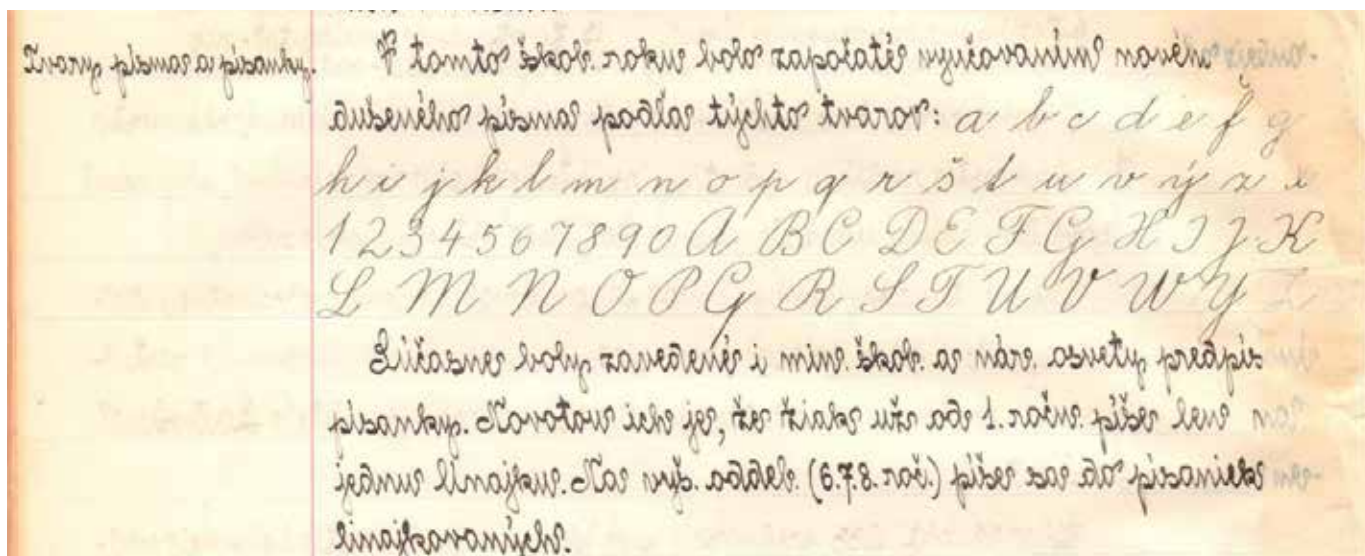 Tvary písma a písanky. V tomto škol. roku bolo započaté vyučovaním nového
duševného písma podľa týchto tvarov: a b c d e f g
h i j k l m n o p q r š t u v ý z ž
1 2 3 4 5 6 7 8 9 0 A B C D E F G H I J K
L M N O P Q R S T U V W Y Z
Súčasne boly zavedené i min. škol. a nár. osvety predpís.
písanky. Novotou ich je, že žiak už od 1. roču. píše len
jednu linajku. Na vyš. oddel. (6.7.8. roč.) píše sa do písaniek
linajkovaných.